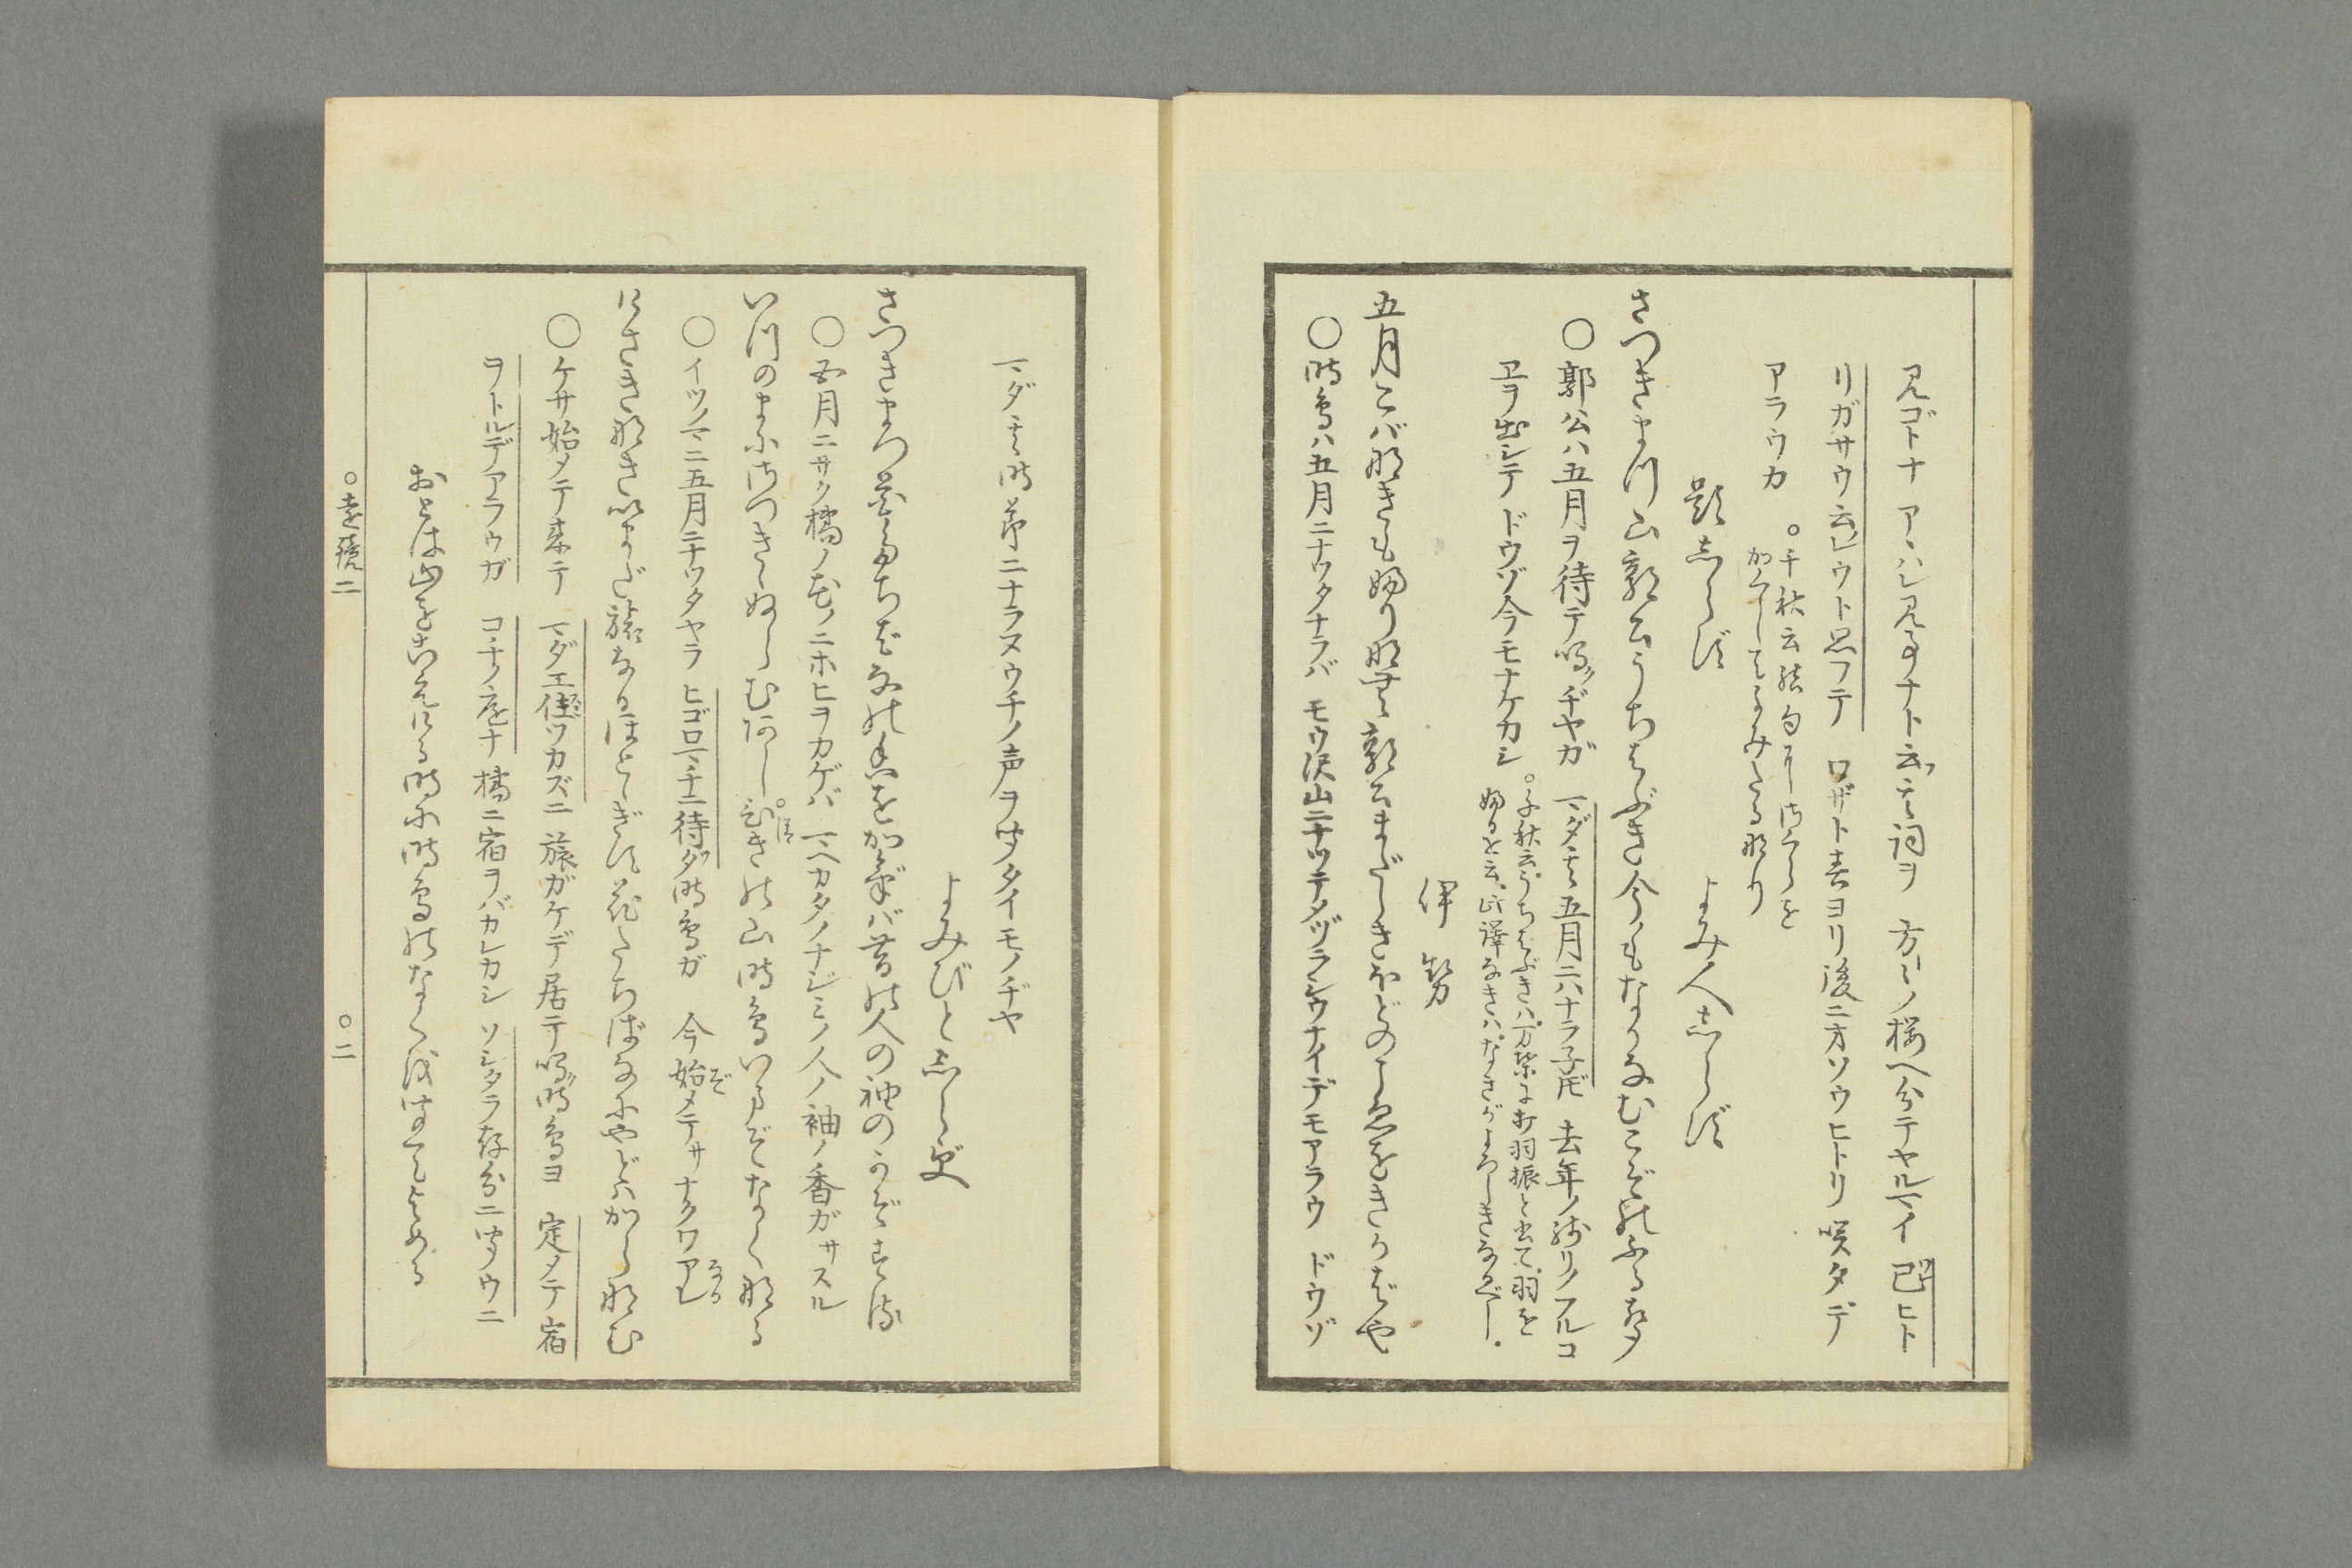 見ゴトナ アハレ見事ナト云フ其詞ヲ 方々ノ桜ヘ分テヤルマイ 己ヒト
リガサウ云レウト思フテ ワザト春ヨリ後ニ方ソウヒトリ咲タデ
アラウカ
題しらず よみ人しらず
さつきまつ山郭公うちはぶき今もなかなむこぞのふる声
○郭公ハ五月ヲ待テ鳴クヂヤガ マダ其五月ニハナラネドモ 去年ノ残リノフルコ
ヱヲ出シテ ドウゾ今モナケカシ
伊勢
五月こバなきもふりなむ郭公まだしきほどのこゑをきかばや
○時鳥ハ五月ニナツタナラバ モウ沢山ニナツテメヅラシウナイデモアラウ ドウゾ
マダ其時節ニナラヌウチノ声ヲ聞タイモノヂヤ
よみびとしらず
さつきまつ花たちばなの香をかげバ昔の人の袖のかぞする
○五月ニサク橘ノ花ノニホヒヲカゲバ マヘカタノナジミノ人ノ袖ノ香ガサスル
いつのまにさつききぬらむあし引きの山時鳥いまぞなくなる
○イツノマニ五月ニナツタヤラ ヒゴロマチニ待ダ時鳥ガ 今始メテサナクワアレ
けさきなきいまだ旅なるほとゝぎす花たちばなにやどハからなむ
○ケサ始メテ来テ マダエ住ツカズニ 旅ガケデ居テ鳴時鳥ヨ 定メテ宿
ヲトルデアラウガ コチノ庭ナ橘ニ宿ヲバカレカシ ソシタラ存分ニ聞ウニ
おとは山をこえける時に時鳥のなくを聞てよめる
○遠鏡二 ○二